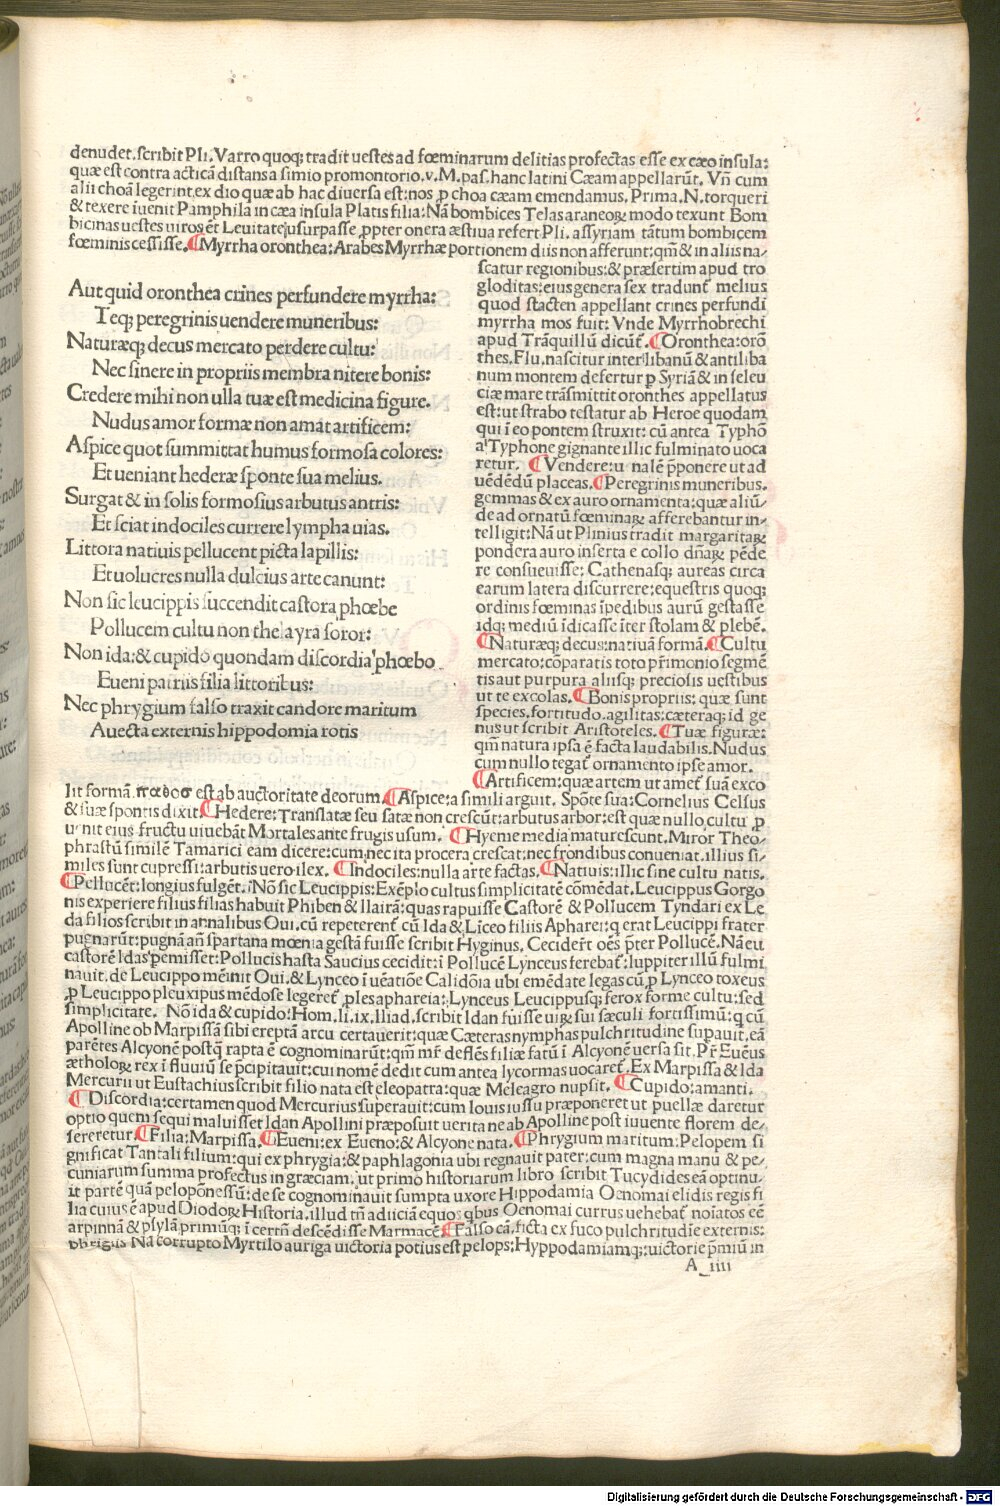 denudet.scribit Pli. Varro quoq; tradit uestes ad fœminarum delitias profectas esse ex cæo insula:
quæ est contra acticã distans a simio promontorio.v.M.paſ.hanc latini Cæam appellarũt. Vñ cum
alii choã legerint.ex dio quæ ab hac diuersa est:nos ꝓ choa cæam emendamus. Prima.N.torqueri
& texere iuenit Pamphila in cæa insula Platis filia: Nã bombices Telas araneoꝝ modo texunt Bom
bicinas uestes uiros et Leuitate usurpasse ꝓpter onera æstiua refert Pli.assyriam tãtum bombicem
fœminis cessisse. ¶Myrrha oronthea: Arabes Myrrhæ portionem diis non afferunt:qm̃ & in aliis na/
scatur regionibus:& præsertim apud tro
gloditas:eius genera sex tradunt̃ melius
quod stacten appellant crines perfundi
myrrha mos fuit: Vnde Myrrhobrechi
apud Trãquillũ dicũt̃.¶Oronthea:orõ
thes.Flu.nascitur inter libanũ & antiliba
num montem defertur ꝑ Syriã & in seleu
ciæ mare trãsmittit oronthes appellatus
est:ut strabo testatur ab Heroe quodam
qui i eo pontem struxit: cũ antea Typhõ
a Typhone gignante illic fulminato uoca
retur. ¶Vendere:u nalẽ ꝓponere ut ad
uẽdẽdũ placeas.¶Peregrinis muneribus.
gemmas & ex auro ornamenta:quæ aliũ/
de ad ornatũ fœminaꝝ afferebantur in/
telligit:Nã ut Plinius tradit margaritaꝝ
pondera auro inserta e collo dñaꝝ pẽde
re consueuisse: Cathenasq; aureas circa
earum latera discurrere:equestris quoq;
ordinis fœminas ĩpedibus aurũ gestasse
idq; mediũ ĩdicasse ĩter stolam & plebẽ.
¶Naturæq; decus:natiuã formã.¶Cultu
mercato:cõparatis toto pr̃imonio segmẽ
tis aut purpura aliisq; preciosis uestibus
ut te excolas.¶Bonis propriis: quæ sunt
species.fortitudo.agilitas:cæteraq; id ge
nus ut scribit Aristoteles.¶Tuæ figuræ:
qm̃ natura ipsa ẽ facta laudabilis.Nudus
cum nullo tegat̃ ornamento ipse amor.
¶Artificem:quæ artem ut amet̃ suã exco
Aut quid oronthea crines perfundere myrrha:
Teq; peregrinis uendere muneribus:
Naturæq; decus mercato perdere cultu:
Nec sinere in propriis membra nitere bonis:
Credere mihi non ulla tuæ est medicina figure.
Nudus amor formæ non amat artificem:
Aspice quot summittat humus formosa colores:
Et ueniant hederæ sponte sua melius.
Surgat & in solis formosius arbutus antris:
Et sciat indociles currere lympha uias.
Littora natiuis pellucent picta lapillis:
Et uolucres nulla dulcius arte canunt:
Non sic leucippis succendit castora phœbe
Pollucem cultu non thelayra soror:
Non ida:& cupido quondam discordia phœbo
Eueni patriis filia littoribus:
Nec phrygium falso traxit candore maritum
Auecta externis hippodomia rotis
lit formã est ab auctoritate deorum.¶Aspice:a simili arguit. Spõte sua:Cornelius Celsus
& suæ spontis dixit.¶Hedere:Translatæ seu satæ non crescũt:arbutus arbor:est quæ nullo cultu ꝓ
uenit eius fructu uiuebãt Mortales ante frugis usum. ¶Hyeme media maturescunt.Miror Theo/
phrastũ similẽ Tamarici eam dicere:cum nec ita procera crescat:nec frondibus conueniat.illius si/
miles sunt cupressi:arbutis uero ilex. ¶Indociles:nulla arte factas.¶Natiuis:illic sine cultu natis.
¶Pellucẽt:longius fulgẽt. Nõ sic Leucippis:Exẽplo cultus simplicitatẽ cõmẽdat.Leucippus Gorgo
nis experiere filius filias habuit Phiben & llairã:quas rapuisse Castorẽ & Pollucem Tyndari ex Le
da filios scribit in annalibus Oui.cũ repeterent̃ cũ Ida & Lĩceo filiis Apharei:q erat Leucippi frater
pugnarũt:pugnã añ spartana mœnia gestã fuisse scribit Hyginus. Cecidert̃ oẽs pter Pollucẽ. Nã eu
castorẽ Idas pemisset:Pollucis hasta Saucius cecidit:ĩ Pollucẽ Lynceus ferebat̃:Iuppiter illũ fulmi
nauit.de Leucippo meĩnit Oui.& Lynceo ĩ uẽatiõe Calidõia ubi emẽdate legas cũ ꝓ Lynceo toxeus
ꝓ Leucippo pleuxipus mẽdose legeret̃ ꝓles aphareia: Lynceus Leucippusq; ferox forme cultu:sed
simplicitate. Nõ ida & cupido:Hom.li.ix.Iliad.scribit Idan fuisse uiꝝ sui sæculi fortissimũ:q cũ
Apolline ob Marpissã sibi ereptã arcu certauerit:quæ Cæteras nymphas pulchritudine supauit.eã
parẽtes Alcyonẽ postq̃ rapta ẽ cognominarũt:qm̃ mr̃ deflẽs filiæ fatũ ĩ Alcyonẽ uersa sit. Pr̃ Euẽus
ætholoꝝ rex ĩ fluuiũ se pcipitauit:cui nomẽ dedit cum antea lycormas uocaret̃.Ex Marpissa & Ida
Mercurii ut Eustachius scribit filio nata est cleopatra:quæ Meleagro nupsit. ¶Cupido:amanti.
¶Discordia:certamen quod Mercurius superauit:cum Iouis iussu præponeret ut puellæ daretur
optio quem sequi maluisset Idan Apollini præposuit uerita ne ab Apolline post iuuente florem de/
sereretur.¶Filia:Marpissa.¶Eueni:ex Eueno:& Alcyone nata.¶Phrygium maritum:Pelopem si
gnificat Tantali filium:qui ex phrygia:& paphlagonia ubi regnauit pater:cum magna manu & pe/
cuniarum summa profectus in græciam:ut primo historiarum libro scribit Tucydides eã optinu/
it partẽ quã pelopõnessũ:de se cognominauit sumpta uxore Hippodamia Oenomai elidis regis fi
lia cuius ẽ apud Diodoꝝ Historia.illud tm̃ adiiciã equos qbus Oenomai currus uehebat̃ noiatos eẽ
arpinnã & psylã primũq; ĩ certm̃ descẽdisse Marmacẽ.¶Falso cã.ficta ex fuco pulchritudĩe externis:
phrigiis Nã corrupto Myrtilo auriga uictoria potius est pelops:Hyppodamiamq;:uictorie pmiũ in
A iiii
Digitalisierung gefördert durch die Deutsche Forschungsgemeinschaft - DFG